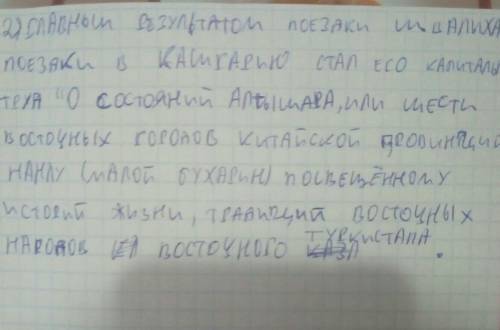 2) ГЛАВНЫМ РЕЗУЛЬТАТОМ ПОЕЗАКИ ШВАЛИХА
ПОЕЗАКИ В КАШГАРИЮ СТАЛ ЕГО КАПИТАЛЬ
ТРУД "О СОСТОЯНИЙ АЛТЫШАРА, ИЛИ ШЕСТИ
ВОСТОЧНЫХ ГОРОДОВ КИТАЙСКОЙ ПРОВИНЦИЙ
НАНЛУ (МАЛОЙ БУХАРИИ) ПОСВЕЩЁННОМУ
ИСТОРИЙ ЖИЗНИ, ТРАДИЦИЙ ВОСТОЧНЫХ
НАРОДОВ ВОСТОЧНОГО ТУРКИСТАНА.